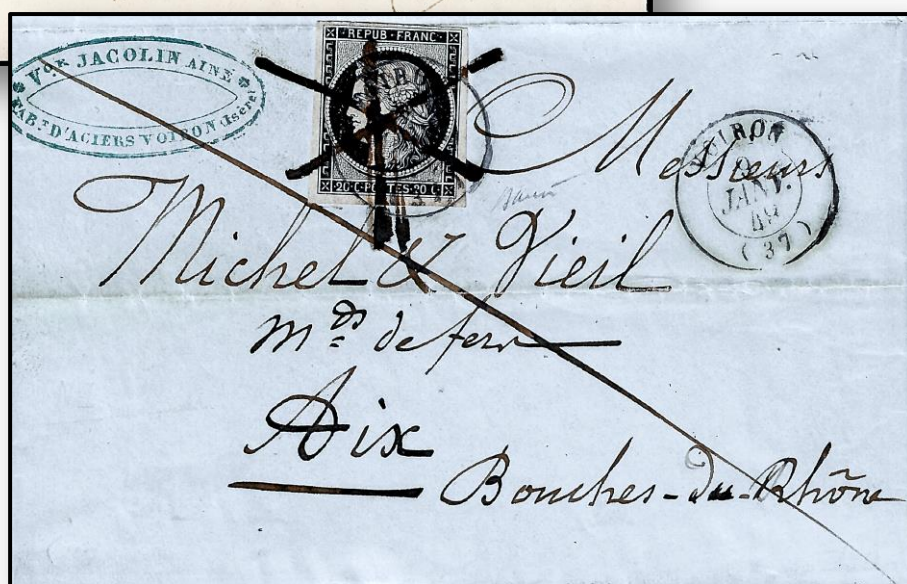 Vve JACOLIN AINÉ
FABT D'ACIERS VOIRON (Isère)
REPUB·FRANC
20·C·POSTES·20·C
VOIRON
JANV.
49
(37)
Messieurs
Michel & Vieil
Mds de fer
Aix
Bouches-du-Rhône